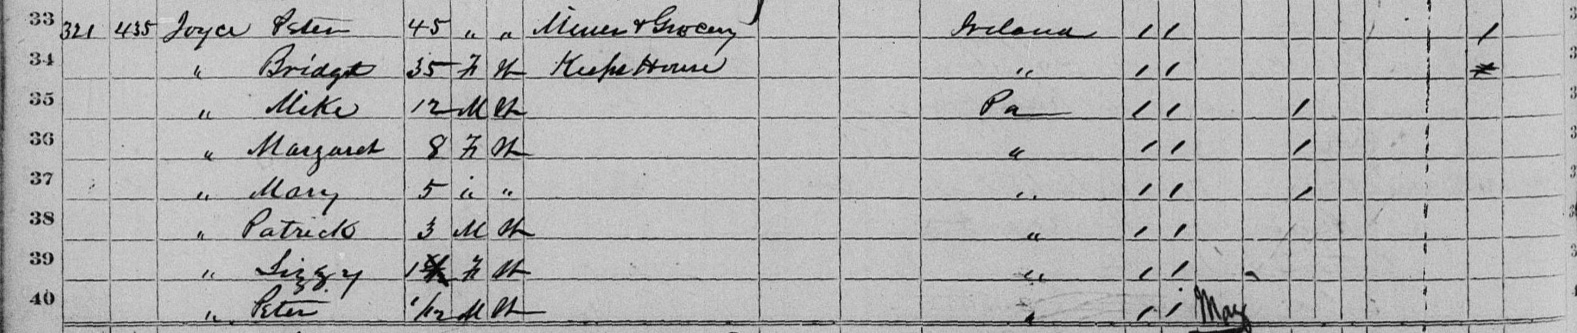 33 321 435 Joyce Peter 45 " " Miner & Grocery Ireland / / /
34 " Bridget 35 F W Keeps House " / /
35 " Mike 12 M W Pa / / /
36 " Margaret 8 F W " / / /
37 " Mary 5 " " " / / /
38 " Patrick 3 M W " / /
39 " Lizzy 1 F W " / /
40 " Peter 1/12 M W " / / May